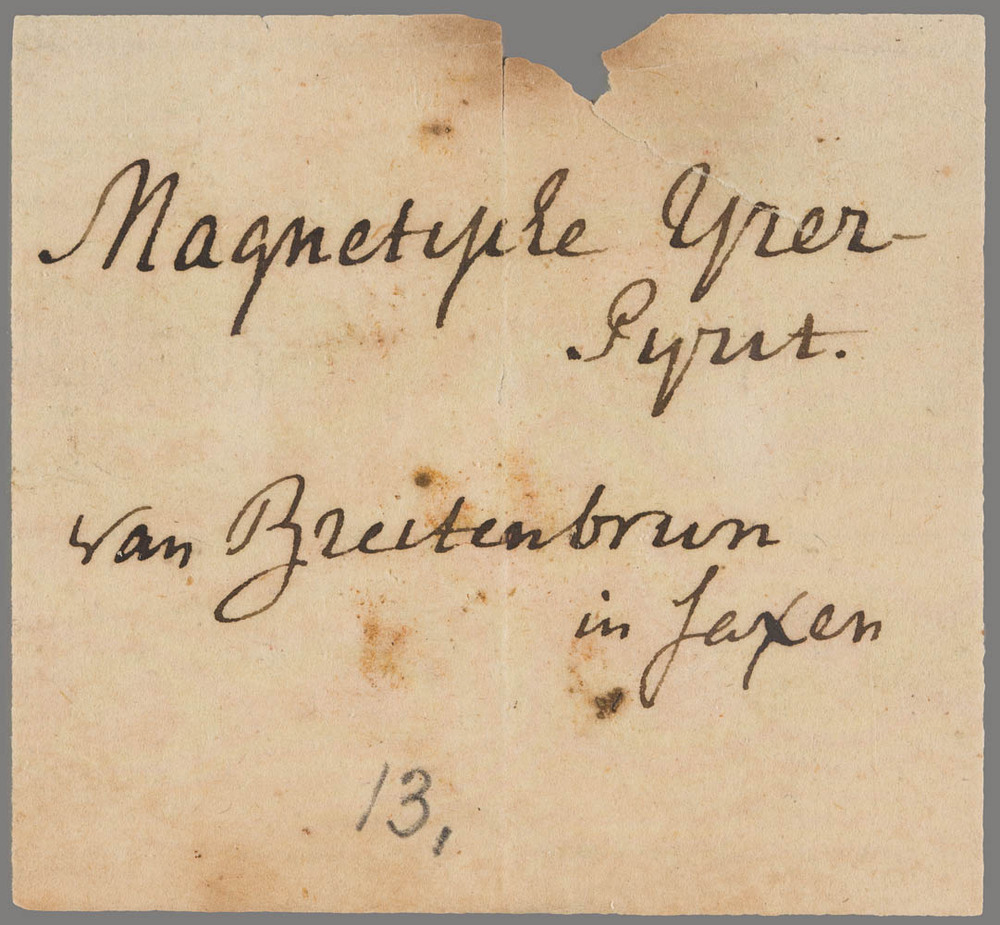 Magnetische Yzer-
Pyrit.
van Breitenbrun
in Saxen
13,